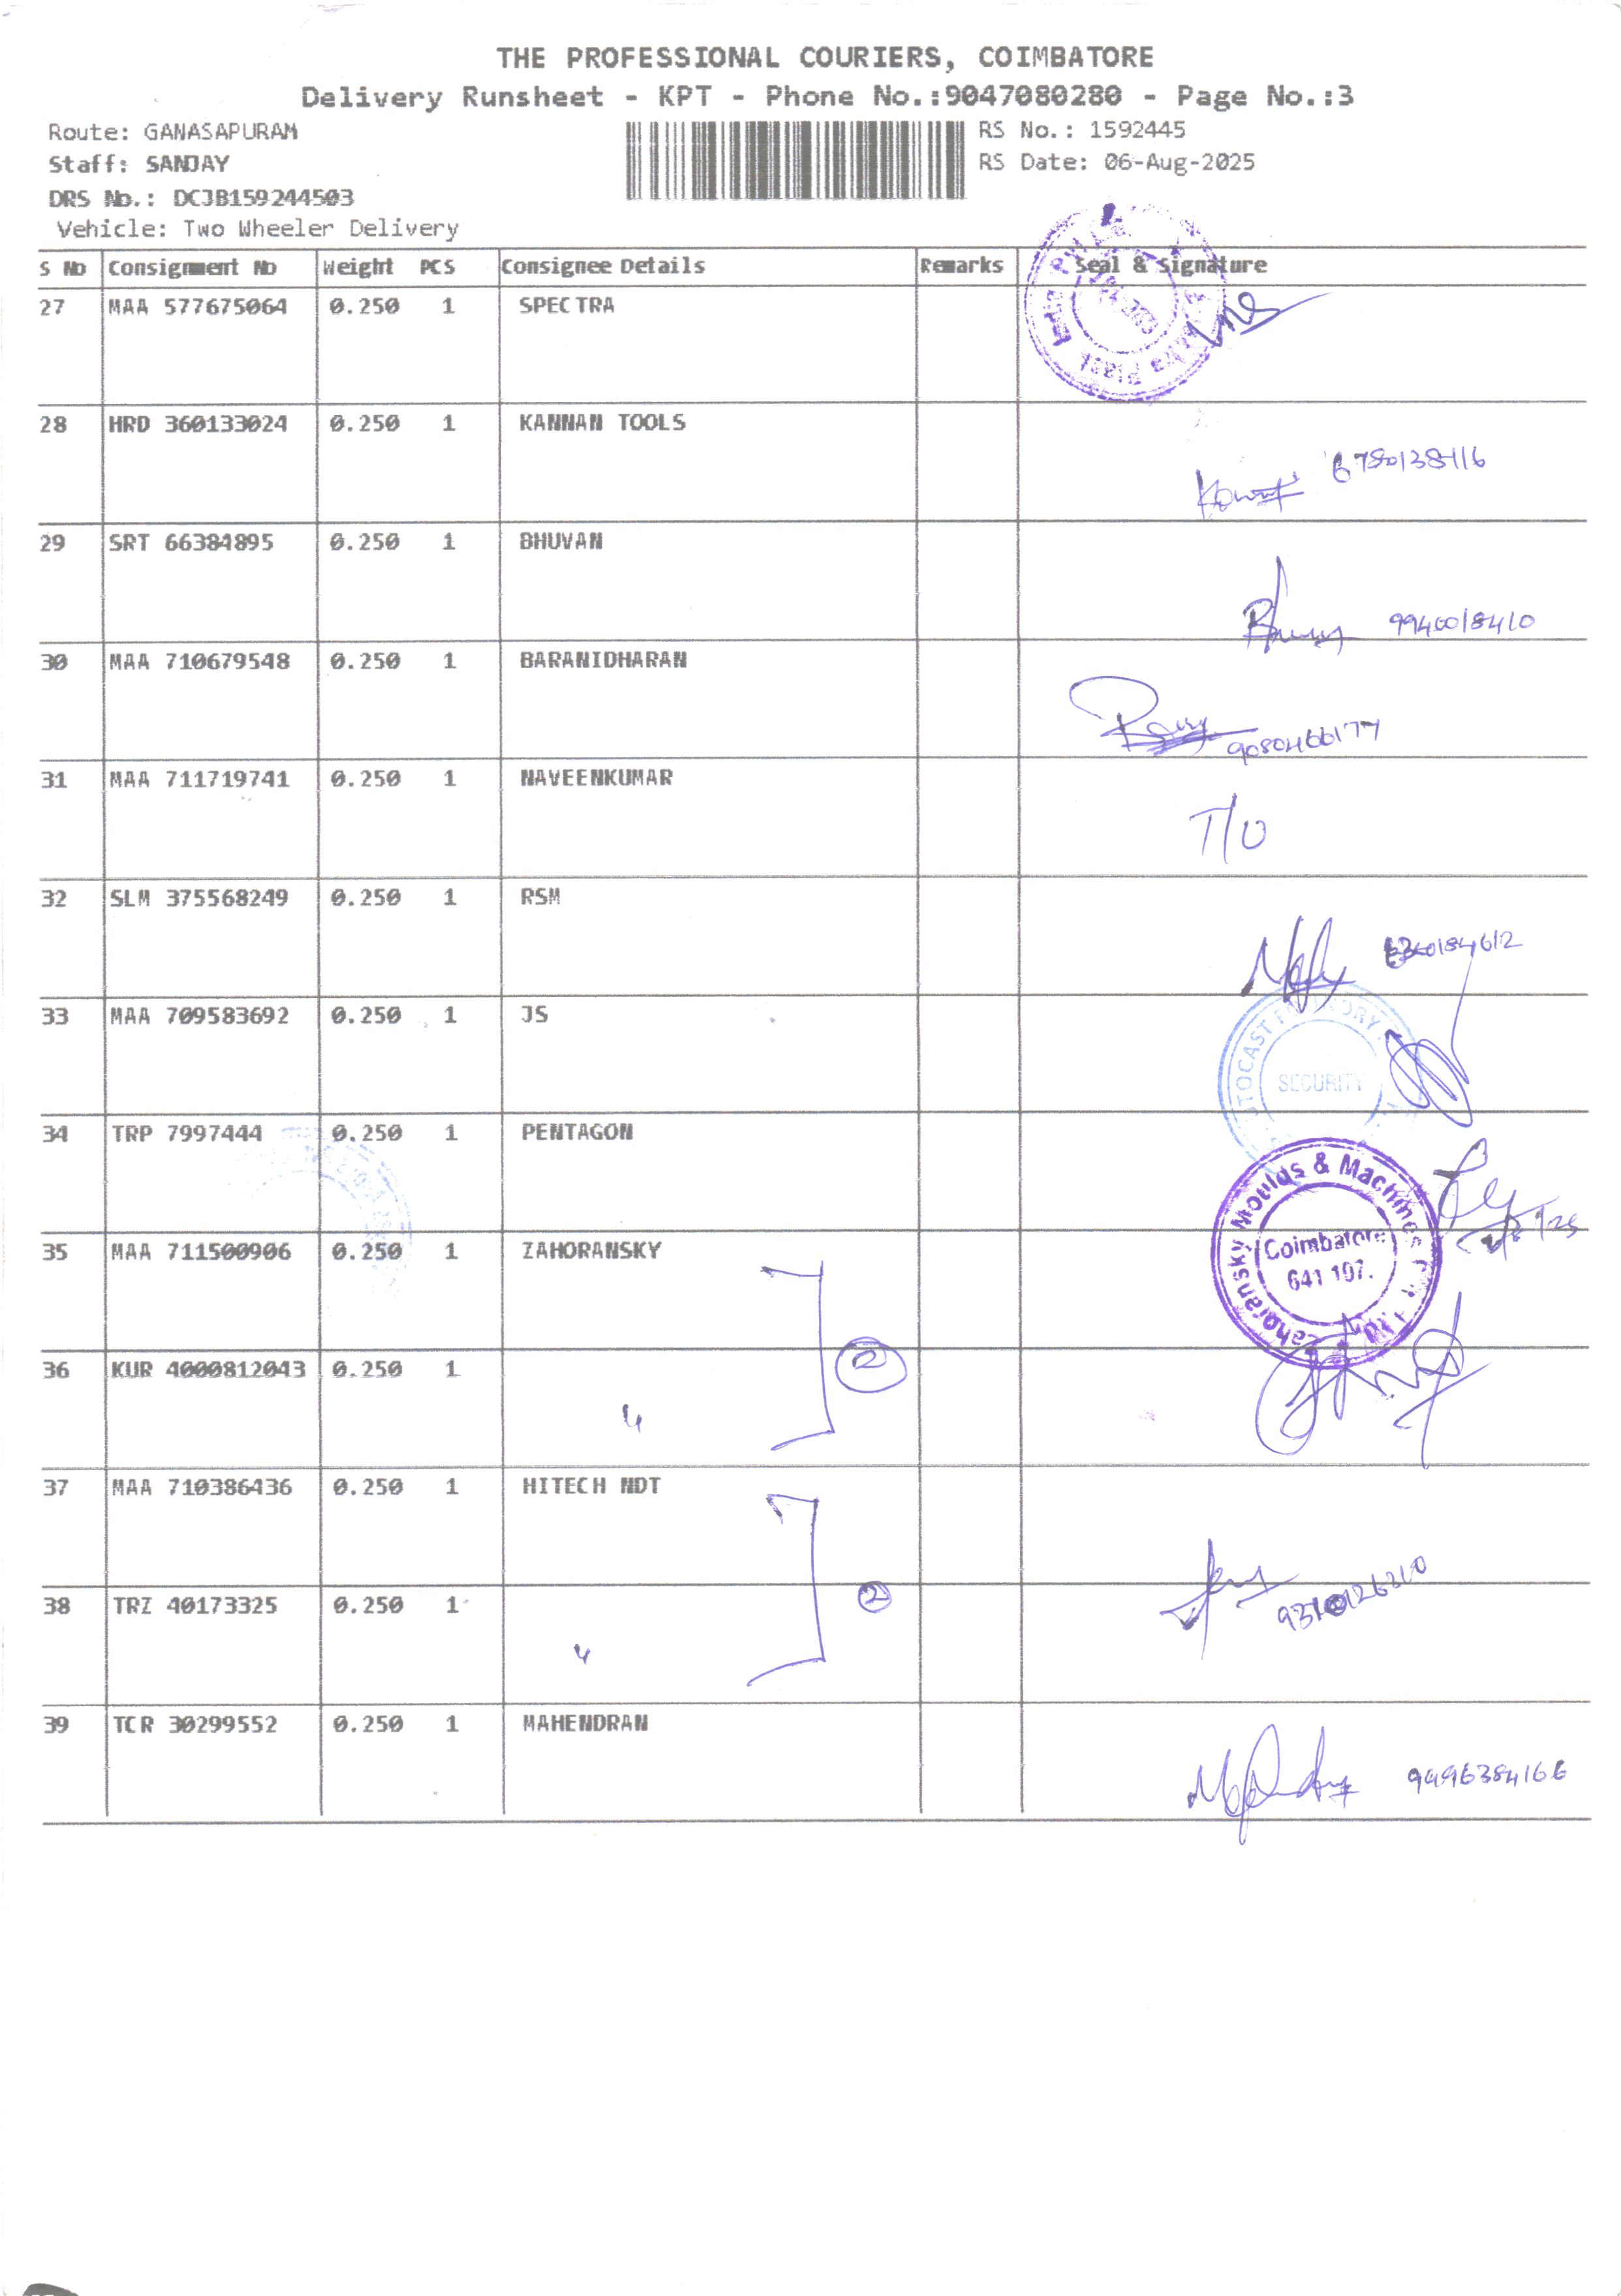 THE PROFESSIONAL COURIERS, COIMBATORE
Delivery Runsheet - KPT - Phone No.:9047080280 - Page No.:3
Route: GANASAPURAM
RS No.: 1592445
Staff: SANJAY
RS Date: 06-Aug-2025
DRS No.: DCJB159244503
Vehicle: Two Wheeler Delivery
S No Consignment No Weight PCS Consignee Details Remarks Seal & Signature
27 MAA 577675064 0.250 1 SPECTRA
28 HRD 360133024 0.250 1 KANNAN TOOLS
29 SRT 66384895 0.250 1 BHUVAN
9940018410
30 MAA 710679548 0.250 1 BARANIDHARAN
9080466177
31 MAA 711719741 0.250 1 NAVEENKUMAR
T/O
32 SLM 375568249 0.250 1 RSM
33 MAA 709583692 0.250 1 JS
SECURITY
34 TRP 7997444 0.250 1 PENTAGON
Zahoransky Moulds & Machines
Coimbatore
641 107.
35 MAA 711500906 0.250 1 ZAHORANSKY
36 KUR 4000812043 0.250 1
2
37 MAA 710386436 0.250 1 HITECH NDT
38 TRZ 40173325 0.250 1
2
39 TCR 30299552 0.250 1 MAHENDRAN
9496384166